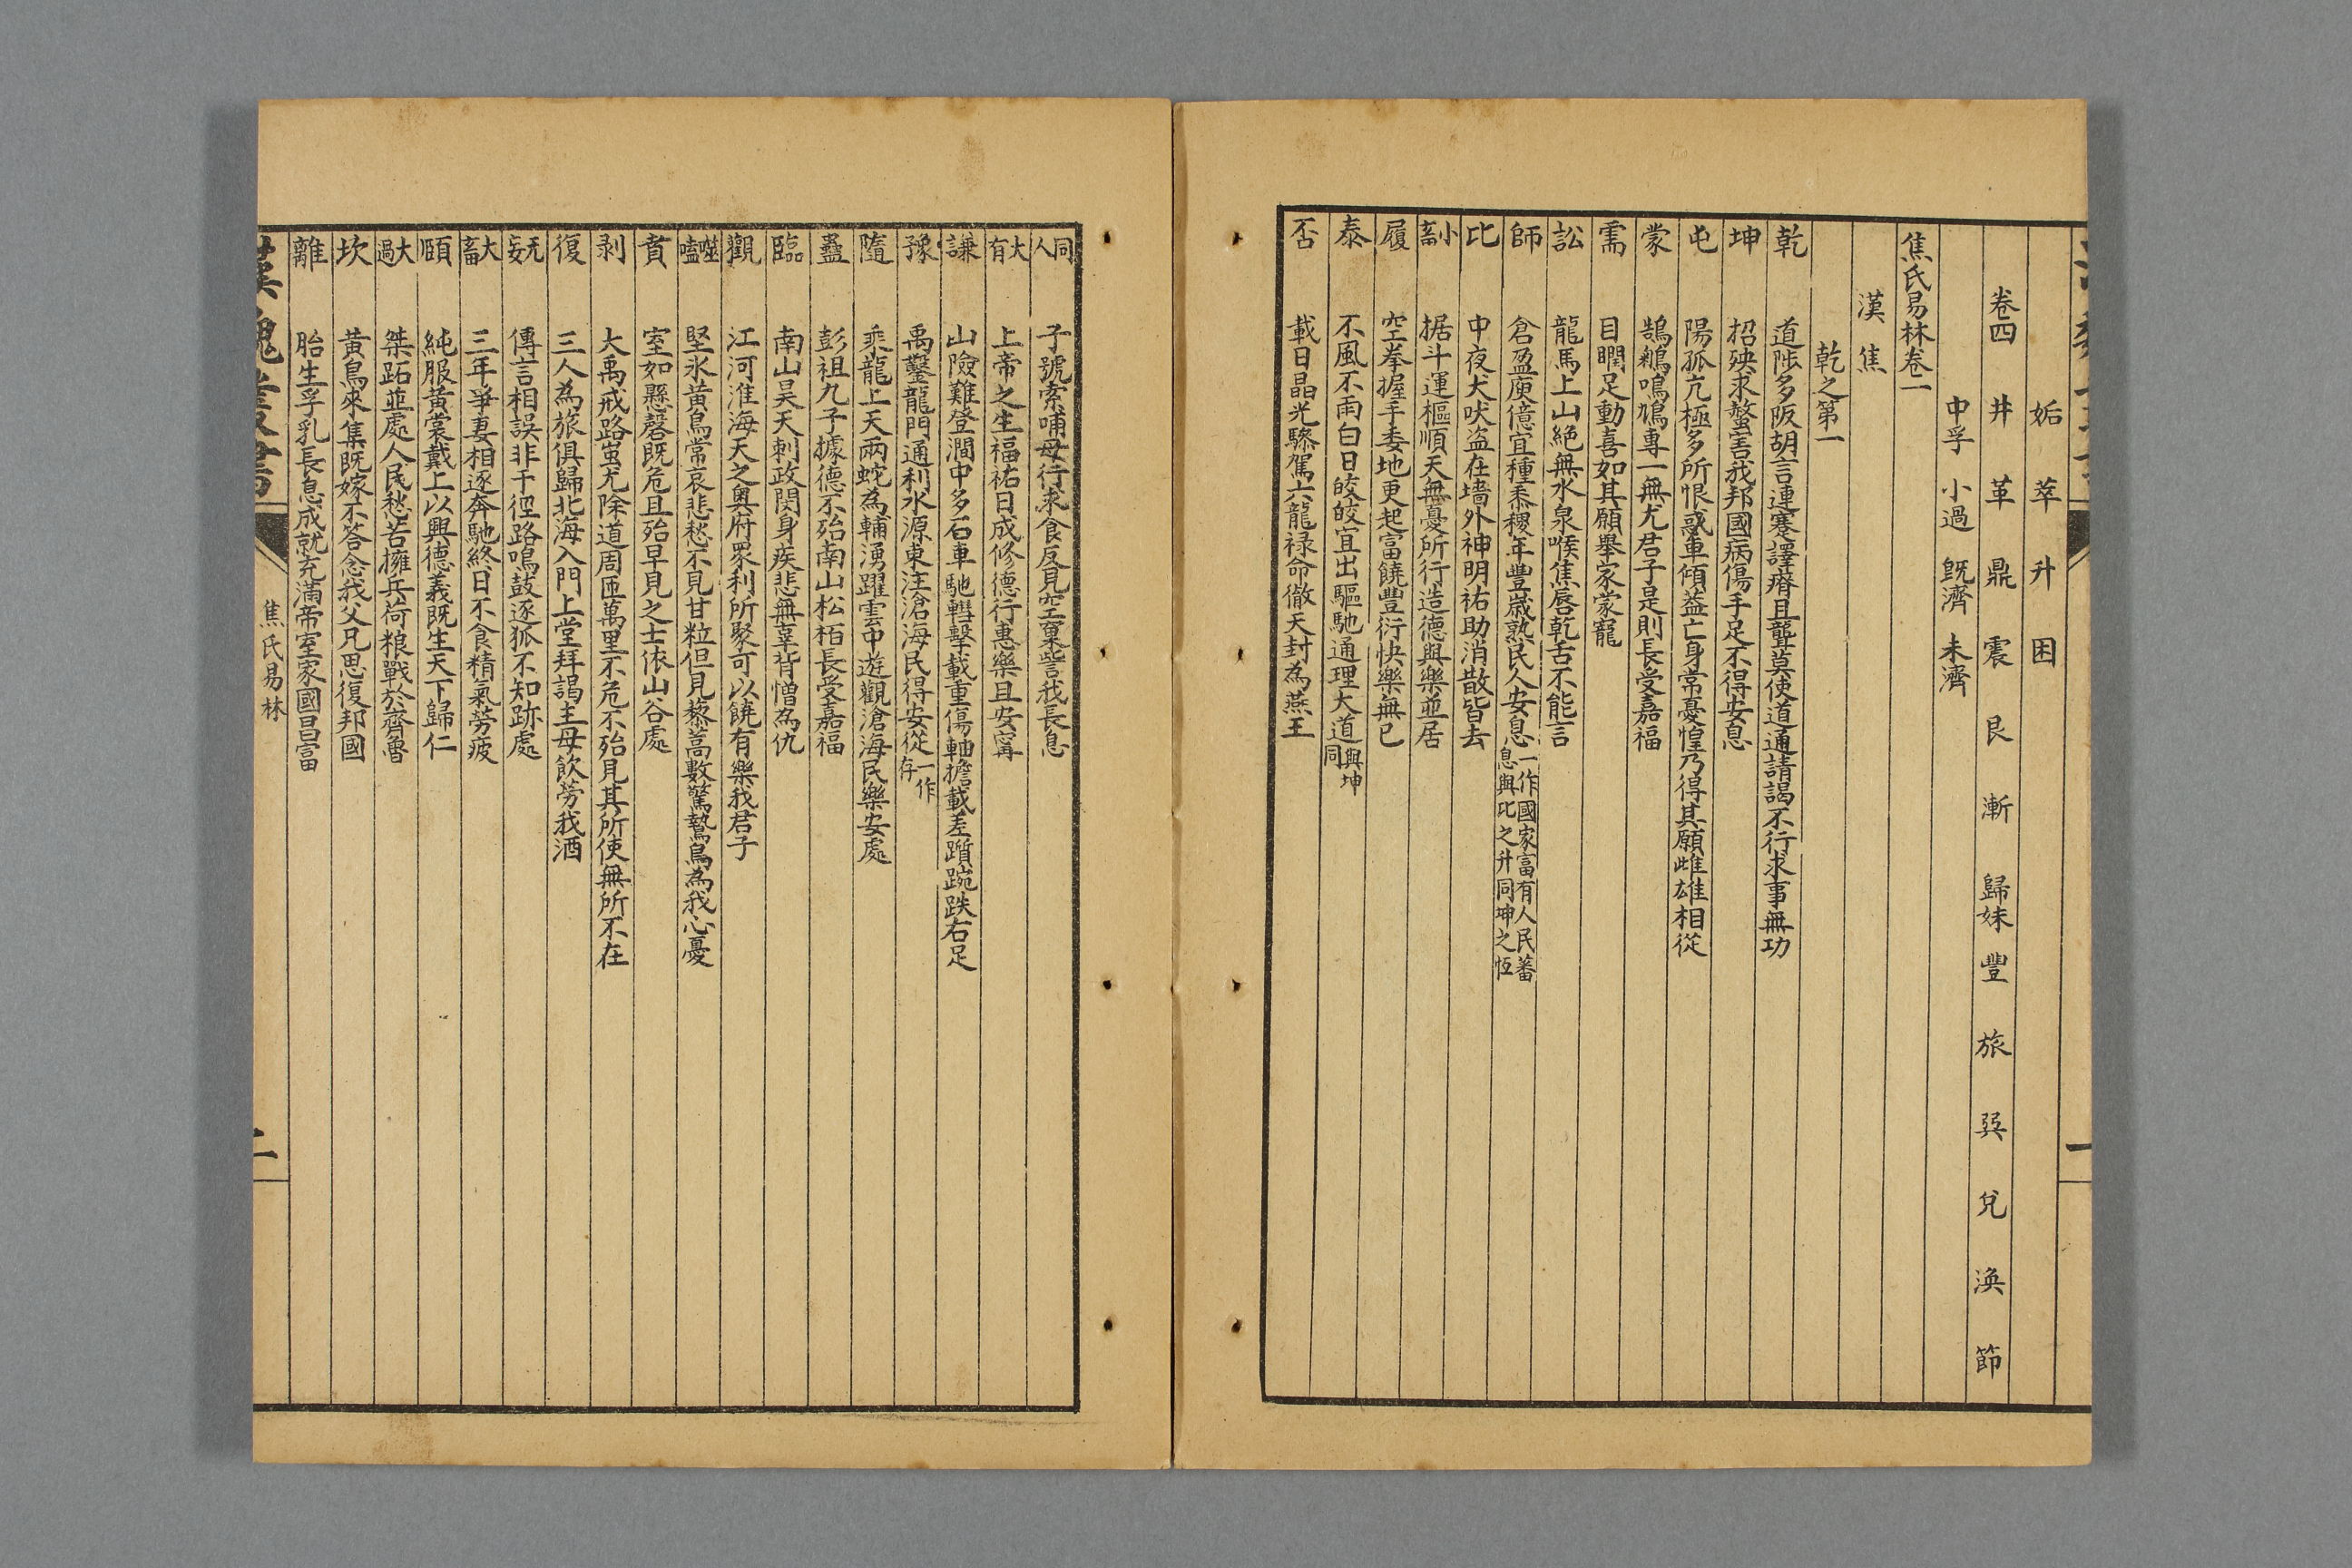 姤 萃 升 困
卷四 井 革 鼎 震 艮 漸 歸妹 豐 旅 巽 兌 渙 節
中孚 小過 旣濟 未濟
焦氏易林卷一
漢 焦
乾之第一
乾 道陟多阪胡言連蹇譯瘠且聾莫使道通請謁不行求事無功
坤 招殃求螫害我邦國病傷手足不得安息
屯 陽孤亢極多所恨惑車傾葢亡身常憂惶乃得其願雌雄相從
蒙 鵠鵴鳴鳩專一無尤君子是則長受嘉福
需 目瞤足動喜如其願舉家蒙寵
訟 龍馬上山絶無水泉喉焦唇乾舌不能言
師 倉盈庾億宜種黍稷年豐歲熟民人安息一作國家富有人民蕃息與比之升同坤之恆
比 中夜犬吠盗在墻外神明祐助消散皆去
小畜 据斗運樞順天無憂所行造德與樂並居
履 空拳握手委地更起富饒豐衍快樂無已
泰 不風不雨白日皎皎宜出驅馳通理大道與坤同
否 載日晶光驂駕六龍禄命徹天封為燕王
同人 子號索哺母行求食反見空巢訾我長息
大有 上帝之生福祐日成修德行惠樂且安寗
謙 山險難登澗中多石車馳轊擊載重傷軸擔載差躓踠跌右足
豫 禹鑿龍門通利水源東注滄海民得安從一作存
隨 乘龍上天兩蛇為輔湧躍雲中遊觀滄海民樂安處
蠱 彭祖九子據德不殆南山松栢長受嘉福
臨 南山昊天刺政閔身疾悲無辜背憎為仇
觀 江河淮海天之奧府眾利所聚可以饒有樂我君子
噬嗑 堅氷黄鳥常哀悲愁不見甘粒但見藜蒿數驚鷙鳥為我心憂
賁 室如懸磬既危且殆早見之士依山谷處
剥 大禹戒路蚩尤除道周匝萬里不危不殆見其所使無所不在
復 三人為旅俱歸北海入門上堂拜謁主母飲勞我酒
无妄 傳言相誤非干徑路鳴鼓逐狐不知跡處
大畜 三年爭妻相逐奔馳終日不食精氣勞疲
頤 純服黄裳戴上以興德義既生天下歸仁
大過 桀跖並處人民愁苦擁兵荷粮戰於齊魯
坎 黄鳥來集既嫁不答念我父兄思復邦國
離 胎生孚乳長息成就充滿帝室家國昌富
焦氏易林